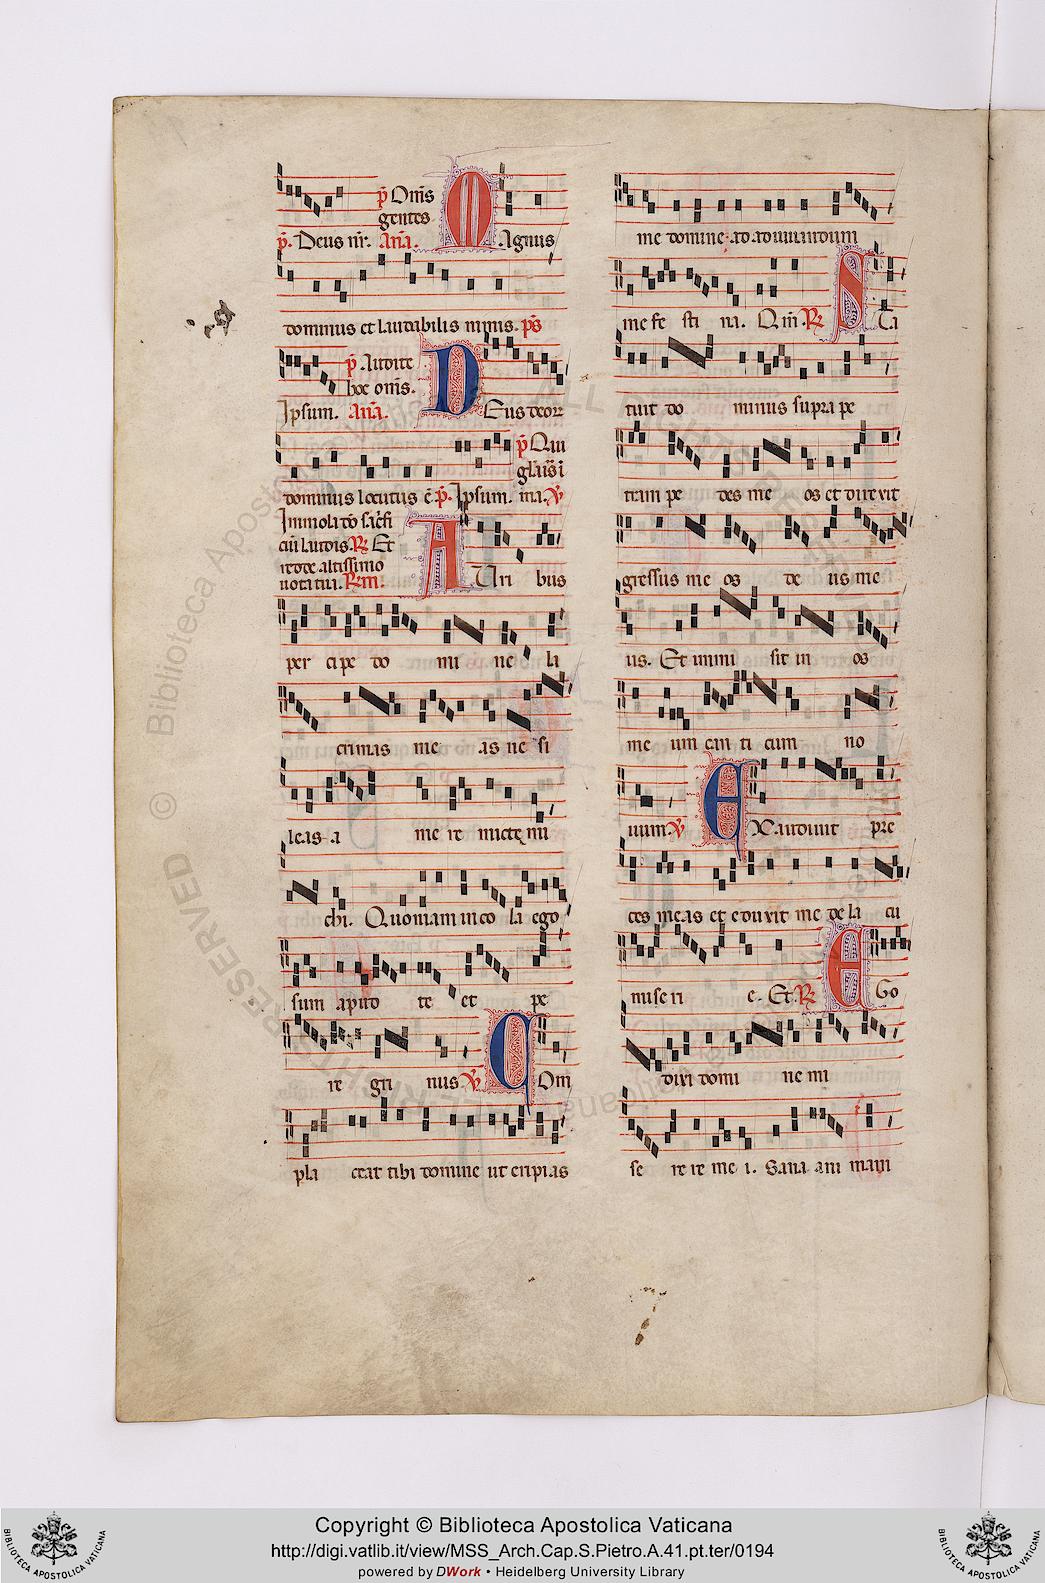 p̃. Om̄s
gentes
p̃. Deus nr̄. An̄a. Magnus
dominus et laudabilis nimis. ps̄
p̃. Audite
hec om̄s.
Ipsum. An̄a. Deus deoꝝ
p̃ Qui
dominus locutus ē. p̃. Ipsum. ℣
Immola dō sac̄fi
ciū laudis. ℟ Et
redde altissimo
vota tua. Auri bus
per cipe do mi ne la
crimas me as ne si
leas a me re micte mi
chi. Quoniam in co la ego
sum apud te et pe
re gri nus ℣ Com
pla ceat tibi domine ut eripias
me domine ad adiuuandum
me fe sti na. Qm̄. ℟ Sta
tuit do minus supra pe
tram pe des me os et direxit
gressus me os de us me
us. Et immi sit in os
me um can ti cum no
uum ℣ Exaudiuit pre
ces meas et eduxit me de la cu
mise ri e. Et. ℟ Ego
dixi domi ne mi
se re re me i. Sana ani mam
ALL RIGHTS RESERVED © Biblioteca Apostolica Vaticana
BIBLIOTECA APOSTOLICA VATICANA
Copyright © Biblioteca Apostolica Vaticana
http://digi.vatlib.it/view/MSS_Arch.Cap.S.Pietro.A.41.pt.ter/0194
powered by DWork • Heidelberg University Library
BIBLIOTECA APOSTOLICA VATICANA